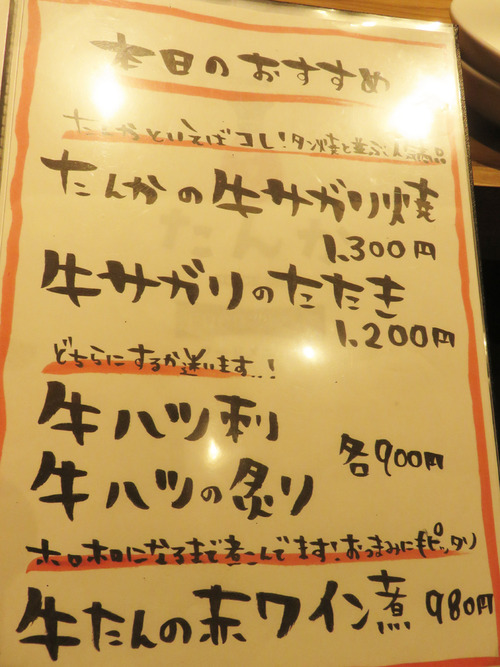 本日のおすすめ
たんかといえばコレ!タン焼と並ぶ人気商品
たんかの牛サガリ焼
1,300円
牛サガリのたたき
1,200円
どちらにするか迷います..!
牛ハツ刺
各900円
牛ハツの炙り
ホロホロになるまで煮こんでます!おつまみにもピッタリ
牛たんの赤ワイン煮 980円